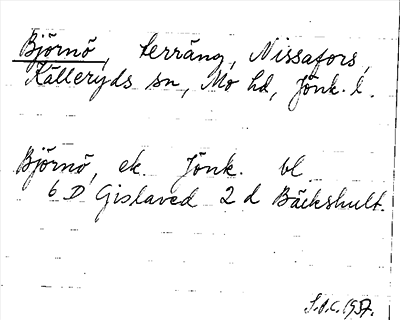 Björnö, terräng, Nissafors,
Källeryds sn, Mo hd, Jönk. l.
Björnö, ek. Jönk. bl
6 D Gislaved 2 d Bäckshult.
S.A.C. 1957.